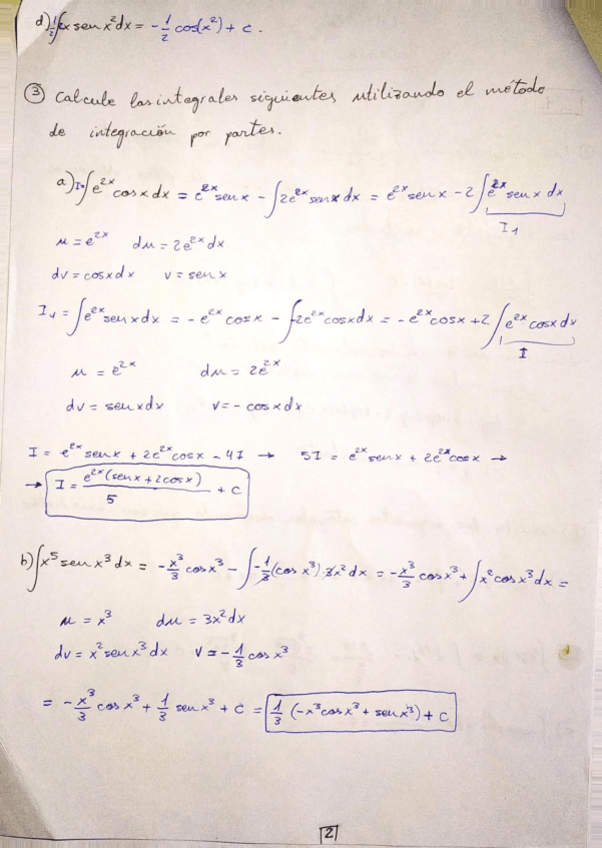 d) ½∫2x sen x² dx = -½ cos(x²) + c.
③ Calcule las integrales siguientes utilizando el método
de integración por partes.
a) I=∫e^{2x} cos x dx = e^{2x} sen x - ∫2e^{2x} sen x dx = e^{2x} sen x - 2∫e^{2x} sen x dx
I₁
u = e^{2x} du = 2e^{2x} dx
dv = cos x dx v = sen x
I₁ = ∫e^{2x} sen x dx = -e^{2x} cos x - ∫-2e^{2x} cos x dx = -e^{2x} cos x + 2∫e^{2x} cos x dx
I
u = e^{2x} du = 2e^{2x}
dv = sen x dx v = -cos x dx
I = e^{2x} sen x + 2e^{2x} cos x - 4I → 5I = e^{2x} sen x + 2e^{2x} cos x →
→ I = e^{2x}(sen x + 2cos x)/5 + c
b) ∫x⁵ sen x³ dx = -x³/3 cos x³ - ∫-1/3 (cos x³)·3x² dx = -x³/3 cos x³ + ∫x² cos x³ dx =
u = x³ du = 3x² dx
dv = x² sen x³ dx v = -1/3 cos x³
= -x³/3 cos x³ + 1/3 sen x³ + c = 1/3 (-x³ cos x³ + sen x³) + c
2